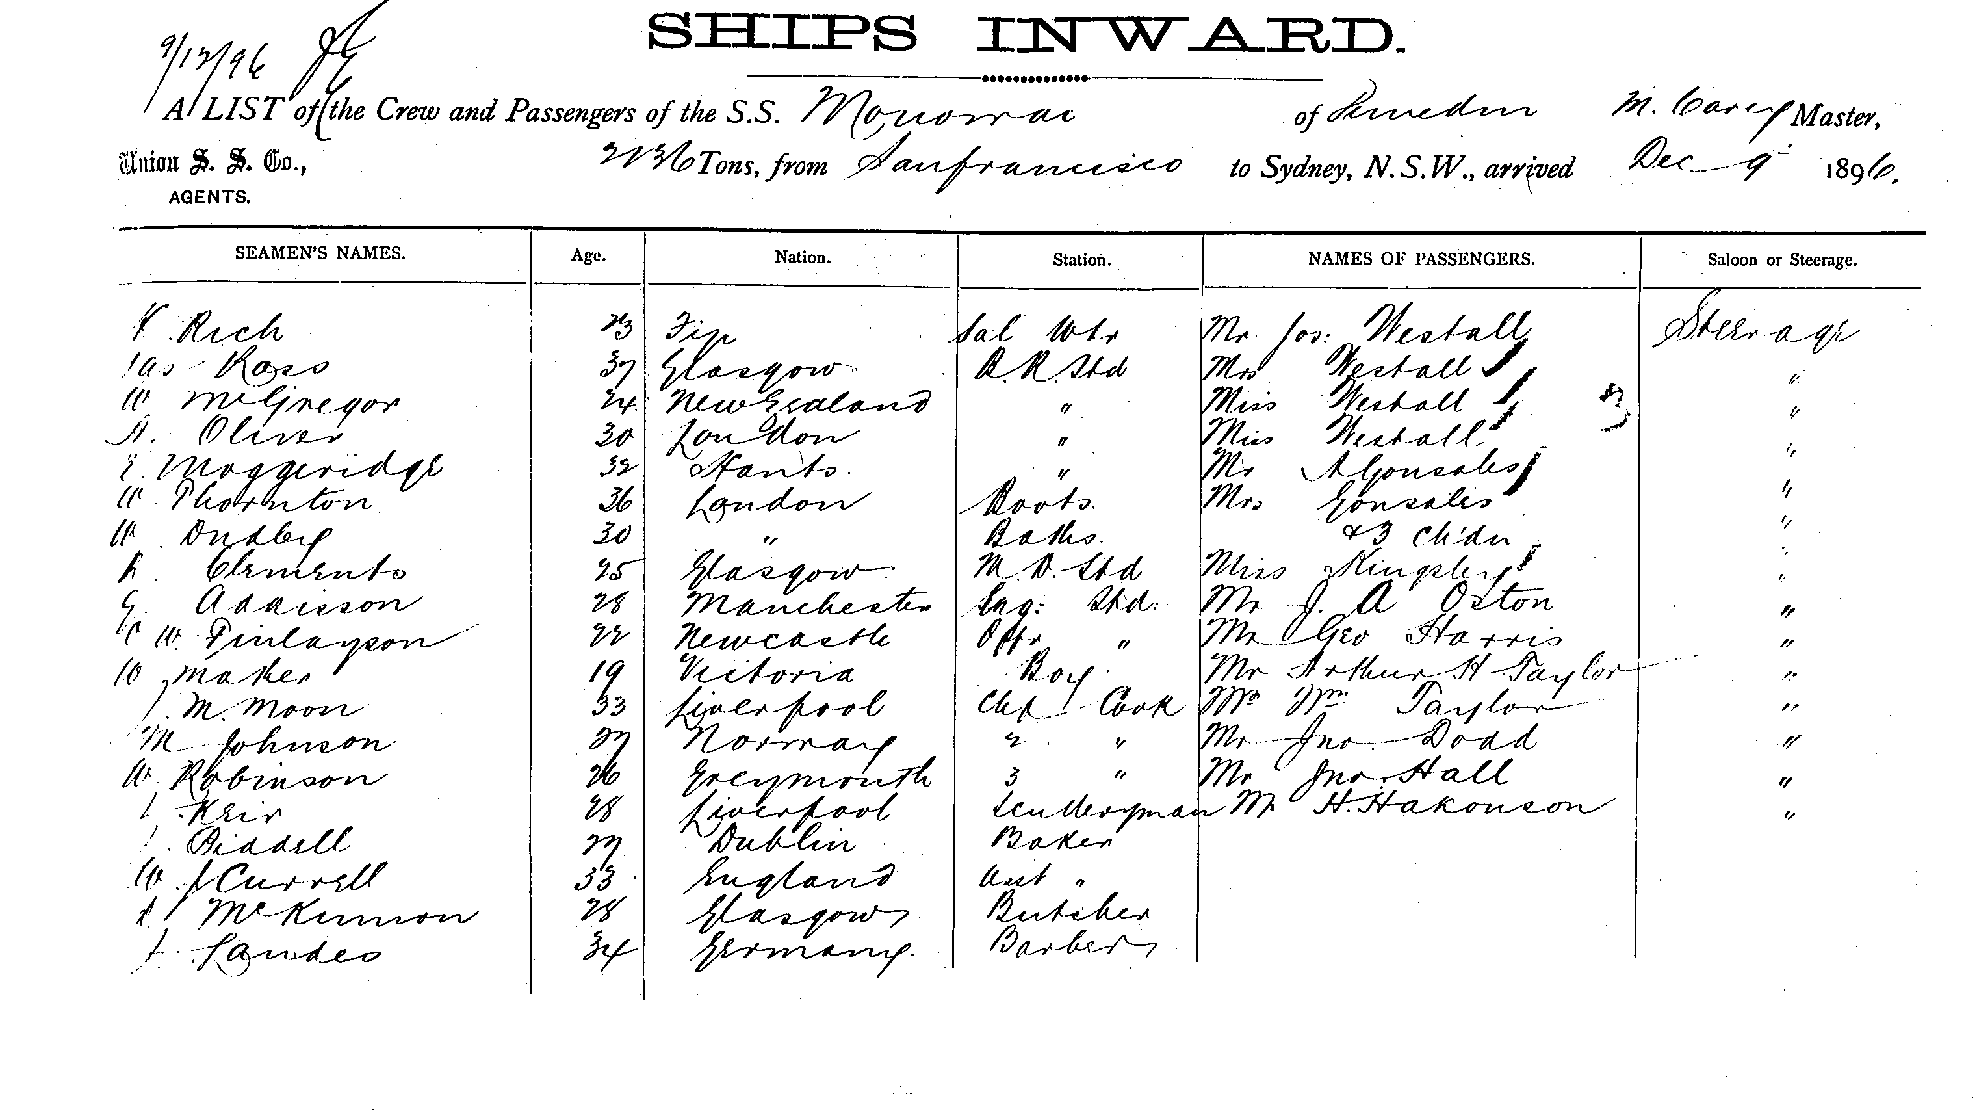 SHIPS INWARD.
9/12/96
A LIST of the Crew and Passengers of the S.S. Monowai of Dunedin M. Carey Master,
Union S. S. Co., 2136 Tons, from Sanfrancisco to Sydney, N.S.W., arrived Dec 9 1896.
AGENTS.
SEAMEN'S NAMES. Age. Nation. Station. NAMES OF PASSENGERS. Saloon or Steerage.
Rich 23 Fiji Sal Wtr Mr. Jos: Westall Steerage
Jas Ross 37 Glasgow B.R. Std Mrs Westall "
W McGregor 24 New Zealand " Miss Westall "
A. Oliver 30 London " Miss Westall "
E. Moggeridge 32 Hants. " Mr A Gonsales "
W Thornton 36 London Boots. Mrs Gonsales "
W Dudley 30 " Baths. & 3 Ch'dn "
R. Clements 25 Glasgow M.D. Std Miss Kingsley "
G. Addisson 28 Manchester Eng: Std: Mr J. A Oxton "
W. Finlayson 22 Newcastle Offr " Mr Geo Harris "
W Maker 19 Victoria Boy Mr Arthur H Taylor "
J. M. Moon 33 Liverpool Chf Cook Mr Wm Taylor "
M Johnson 27 Norway 2 " Mr Jno Dodd "
W Robinson 26 Greymouth 3 " Mr Jno Hall "
J Keir 28 Liverpool Sculleryman Mr H. Hakonson "
J. Biddell 27 Dublin Baker
W J Currell 33 England Asst "
McKinnon 28 Glasgow Butcher
J. Landes 34 Germany. Barber